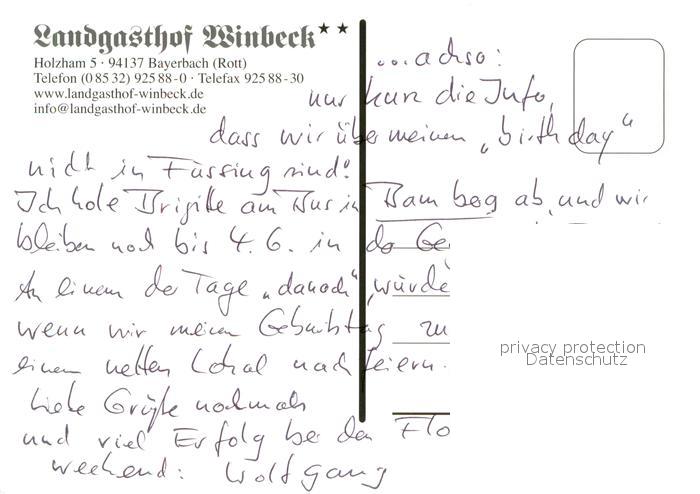 Landgasthof Winbeck**
Holzham 5 · 94137 Bayerbach (Rott)
Telefon (0 85 32) 925 88 - 0 · Telefax 925 88 - 30
www.landgasthof-winbeck.de
info@landgasthof-winbeck.de
...achso:
nur kurz die Info,
dass wir über meinen „birthday“
nicht in Füssing sind!
Ich hole Brigitte am Bus in Bamberg ab und wir
bleiben noch bis 4.6. in
An einem der Tage „danach“ würde
wenn wir meinen Geburtstag zu
einem netten Lokal nachfeiern.
Liebe Grüße nochmals
und viel Erfolg bei den Flo
weekend: Wolfgang
privacy protection
Datenschutz